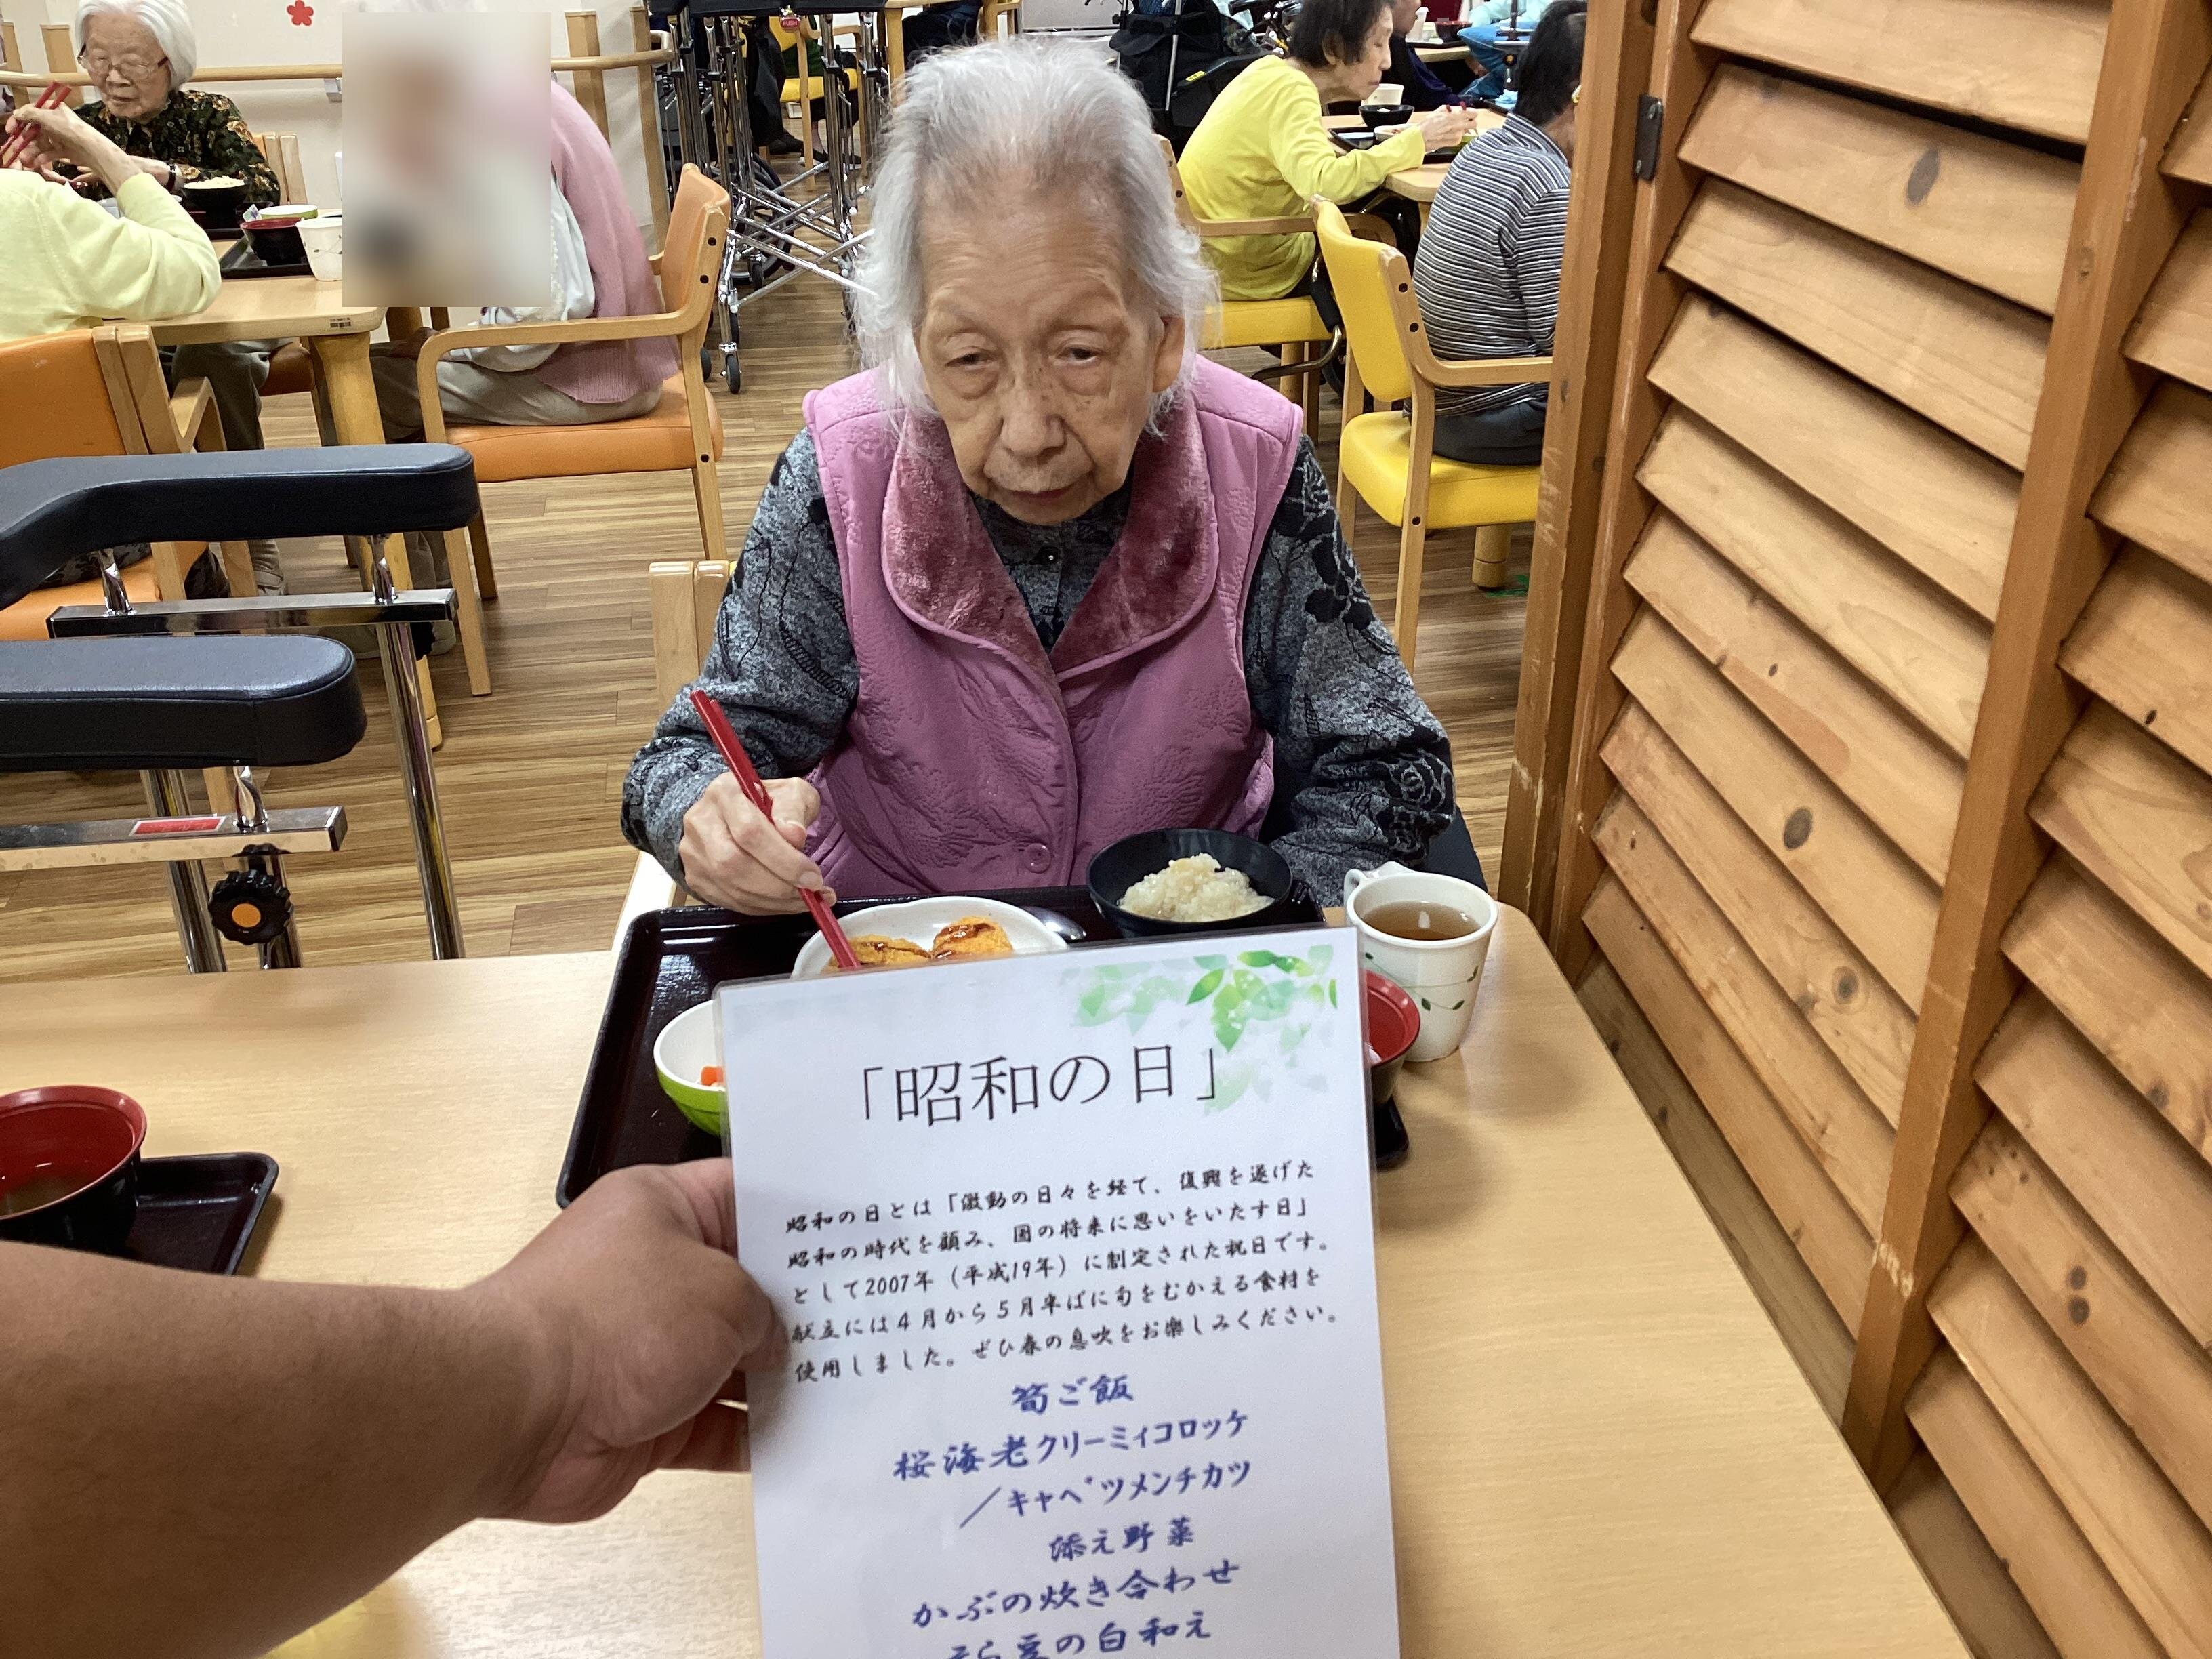 「昭和の日」
昭和の日とは「激動の日々を経て、復興を遂げた
昭和の時代を顧み、国の将来に思いをいたす日」
として2007年（平成19年）に制定された祝日です。
献立には4月から5月半ばに旬をむかえる食材を
使用しました。ぜひ春の息吹をお楽しみください。
筍ご飯
桜海老クリーミィコロッケ
／キャベツメンチカツ
添え野菜
かぶの炊き合わせ
そら豆の白和え